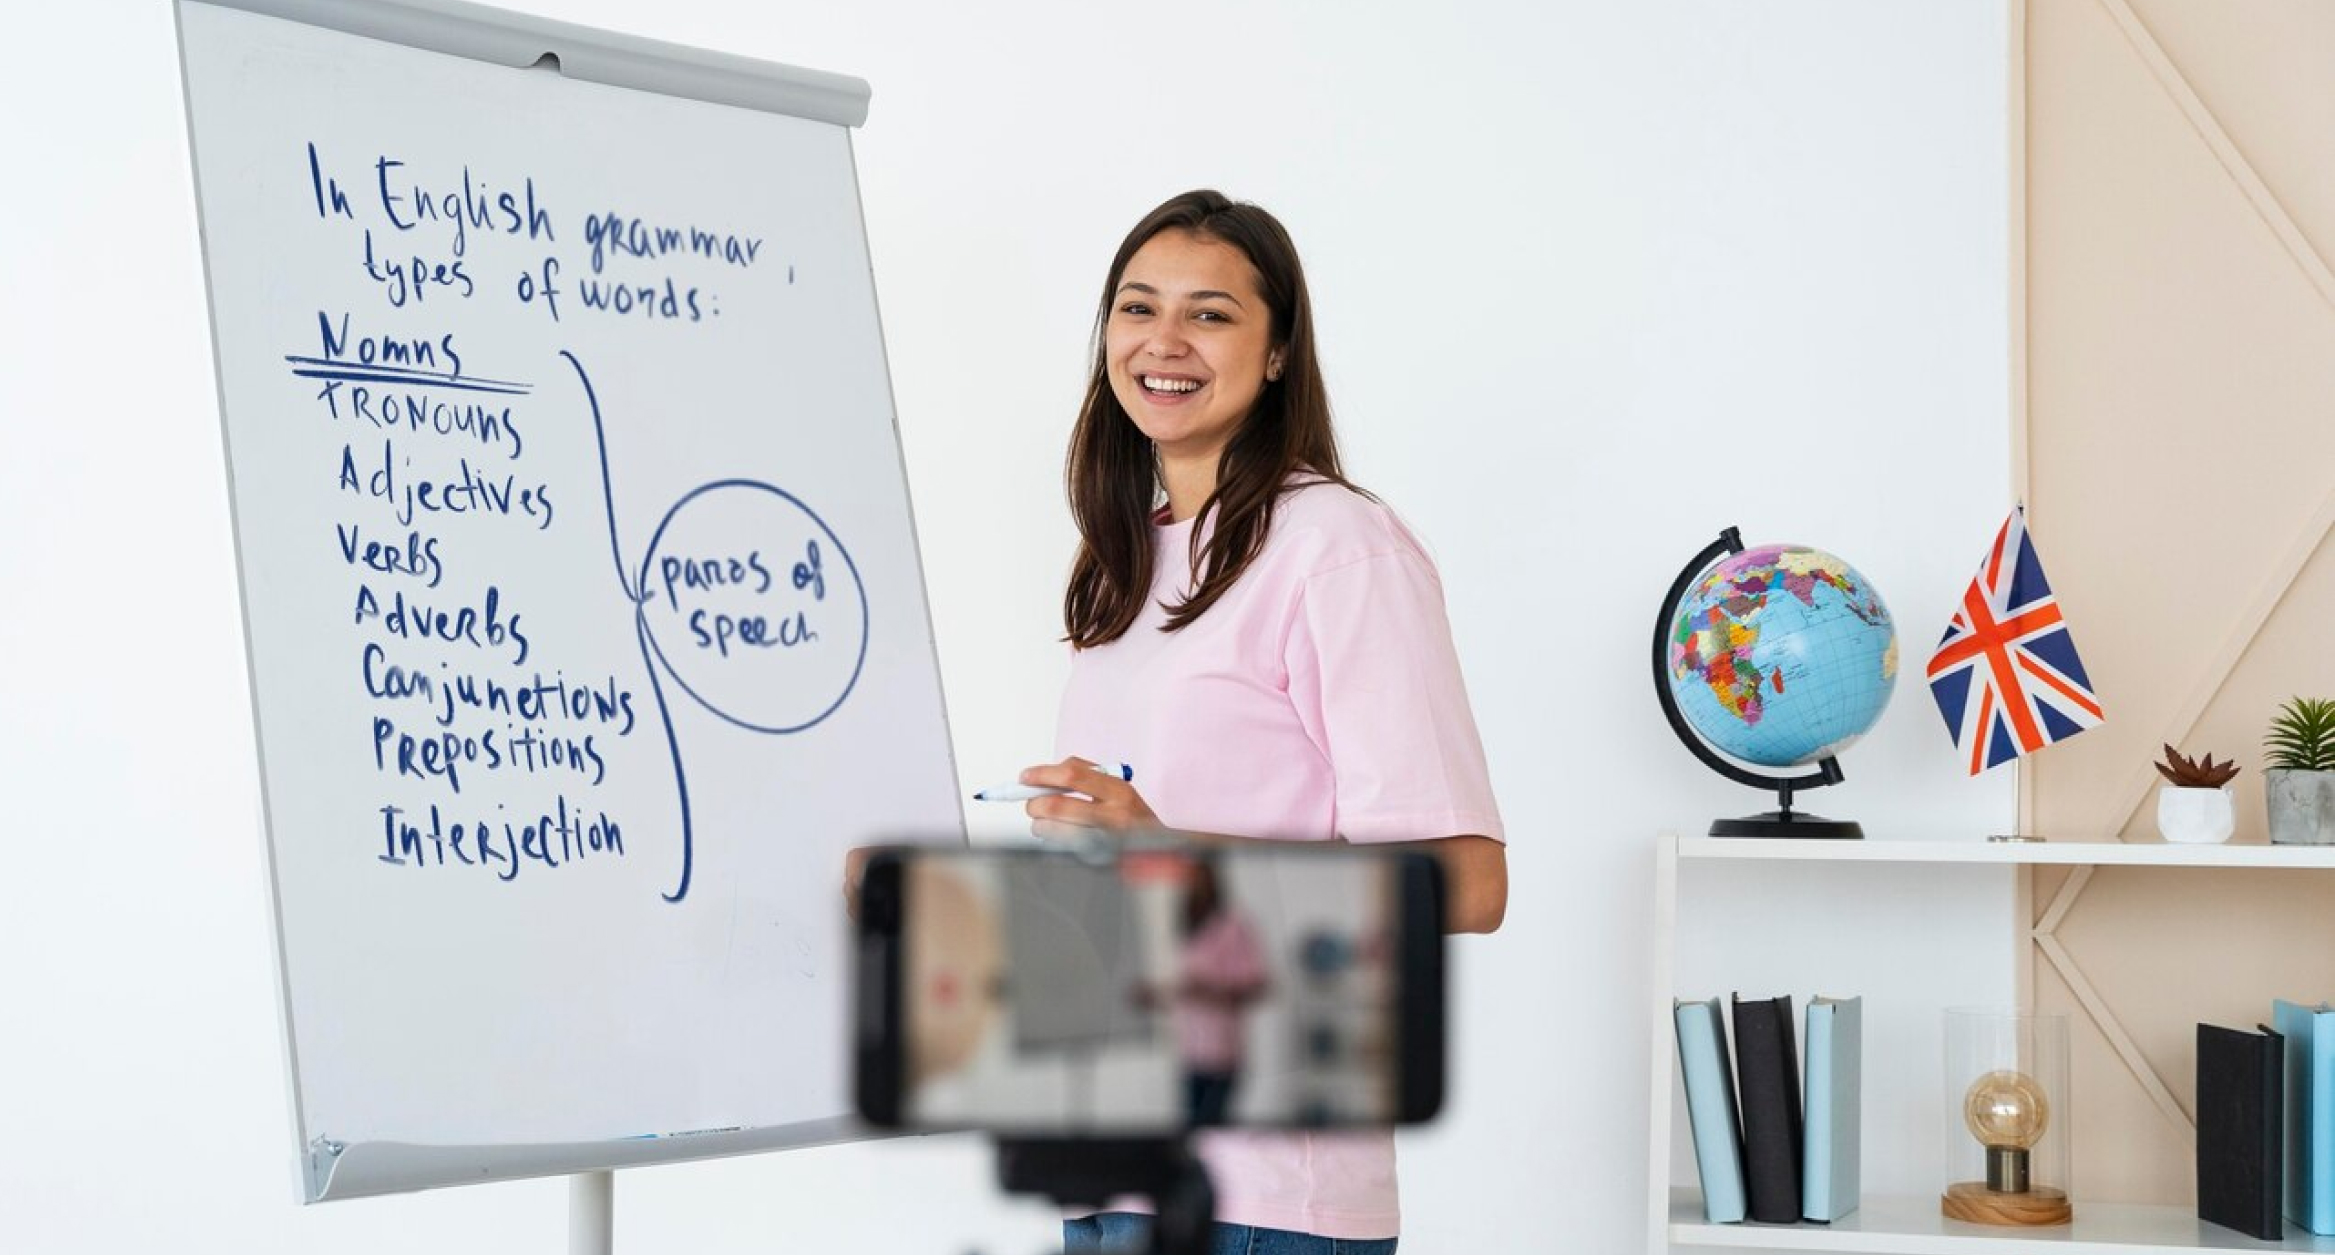 In English grammar,
types of words:
Nomns
TRONOUNS
Adjectives
Verbs
Adverbs
Conjunetions
Prepositions
Interjection
paros of
speech